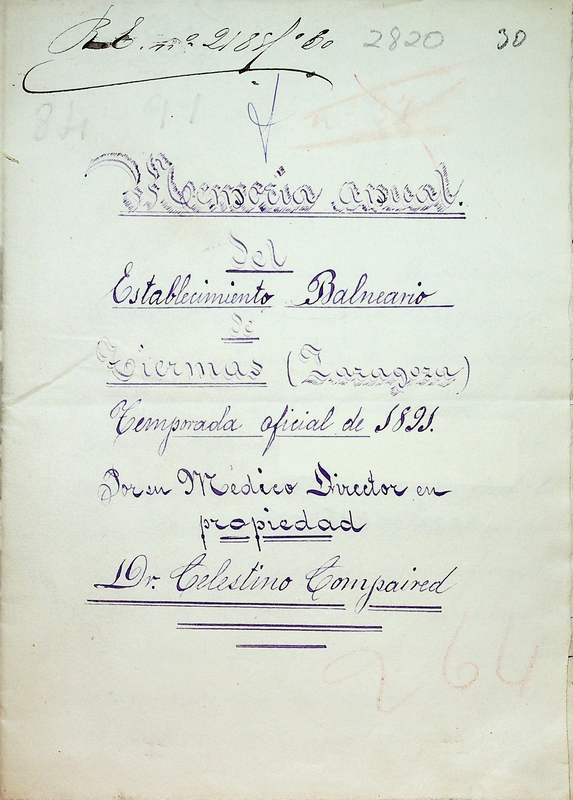 2820 30
84 91
Memoria anual.
del
Establecimiento Balneario
de
Tiermas (Zaragoza)
Temporada oficial de 1891.
Por su Médico Director en
propiedad
Dr. Celestino Compaired
264